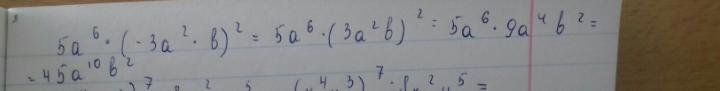 5a⁶ · (-3a² · b)² = 5a⁶ · (3a²b)² = 5a⁶ · 9a⁴b² =
= 45a¹⁰b²